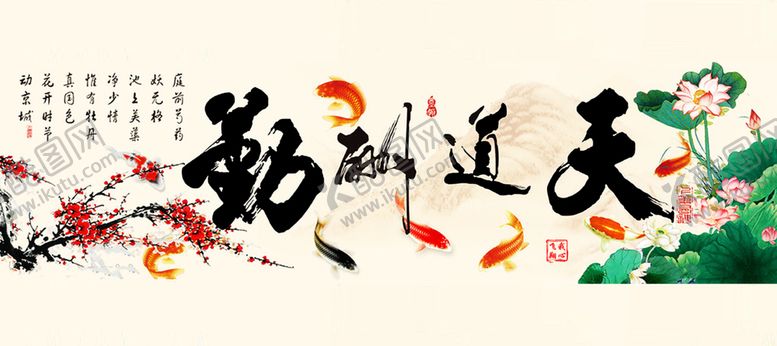 天道酬勤
庭前芍药
妖无格
池上芙蕖
净少情
惟有牡丹
真国色
花开时节
动京城
我心飞翔
www.ikutu.com